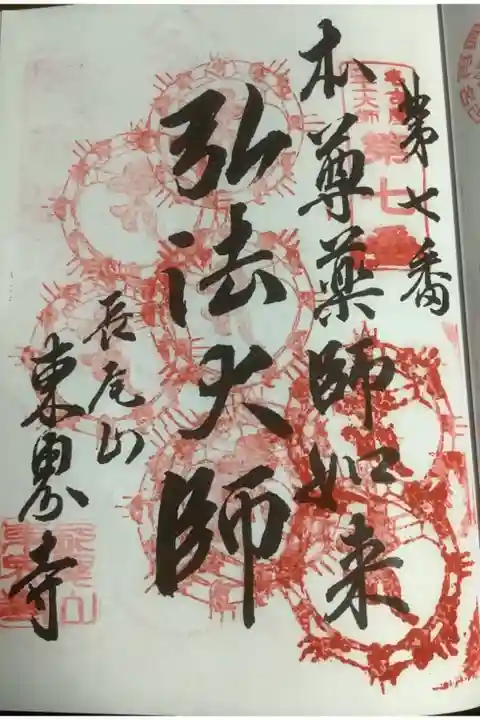 第七番
本尊薬師如来
弘法大師
長尾山
東界寺
第七番